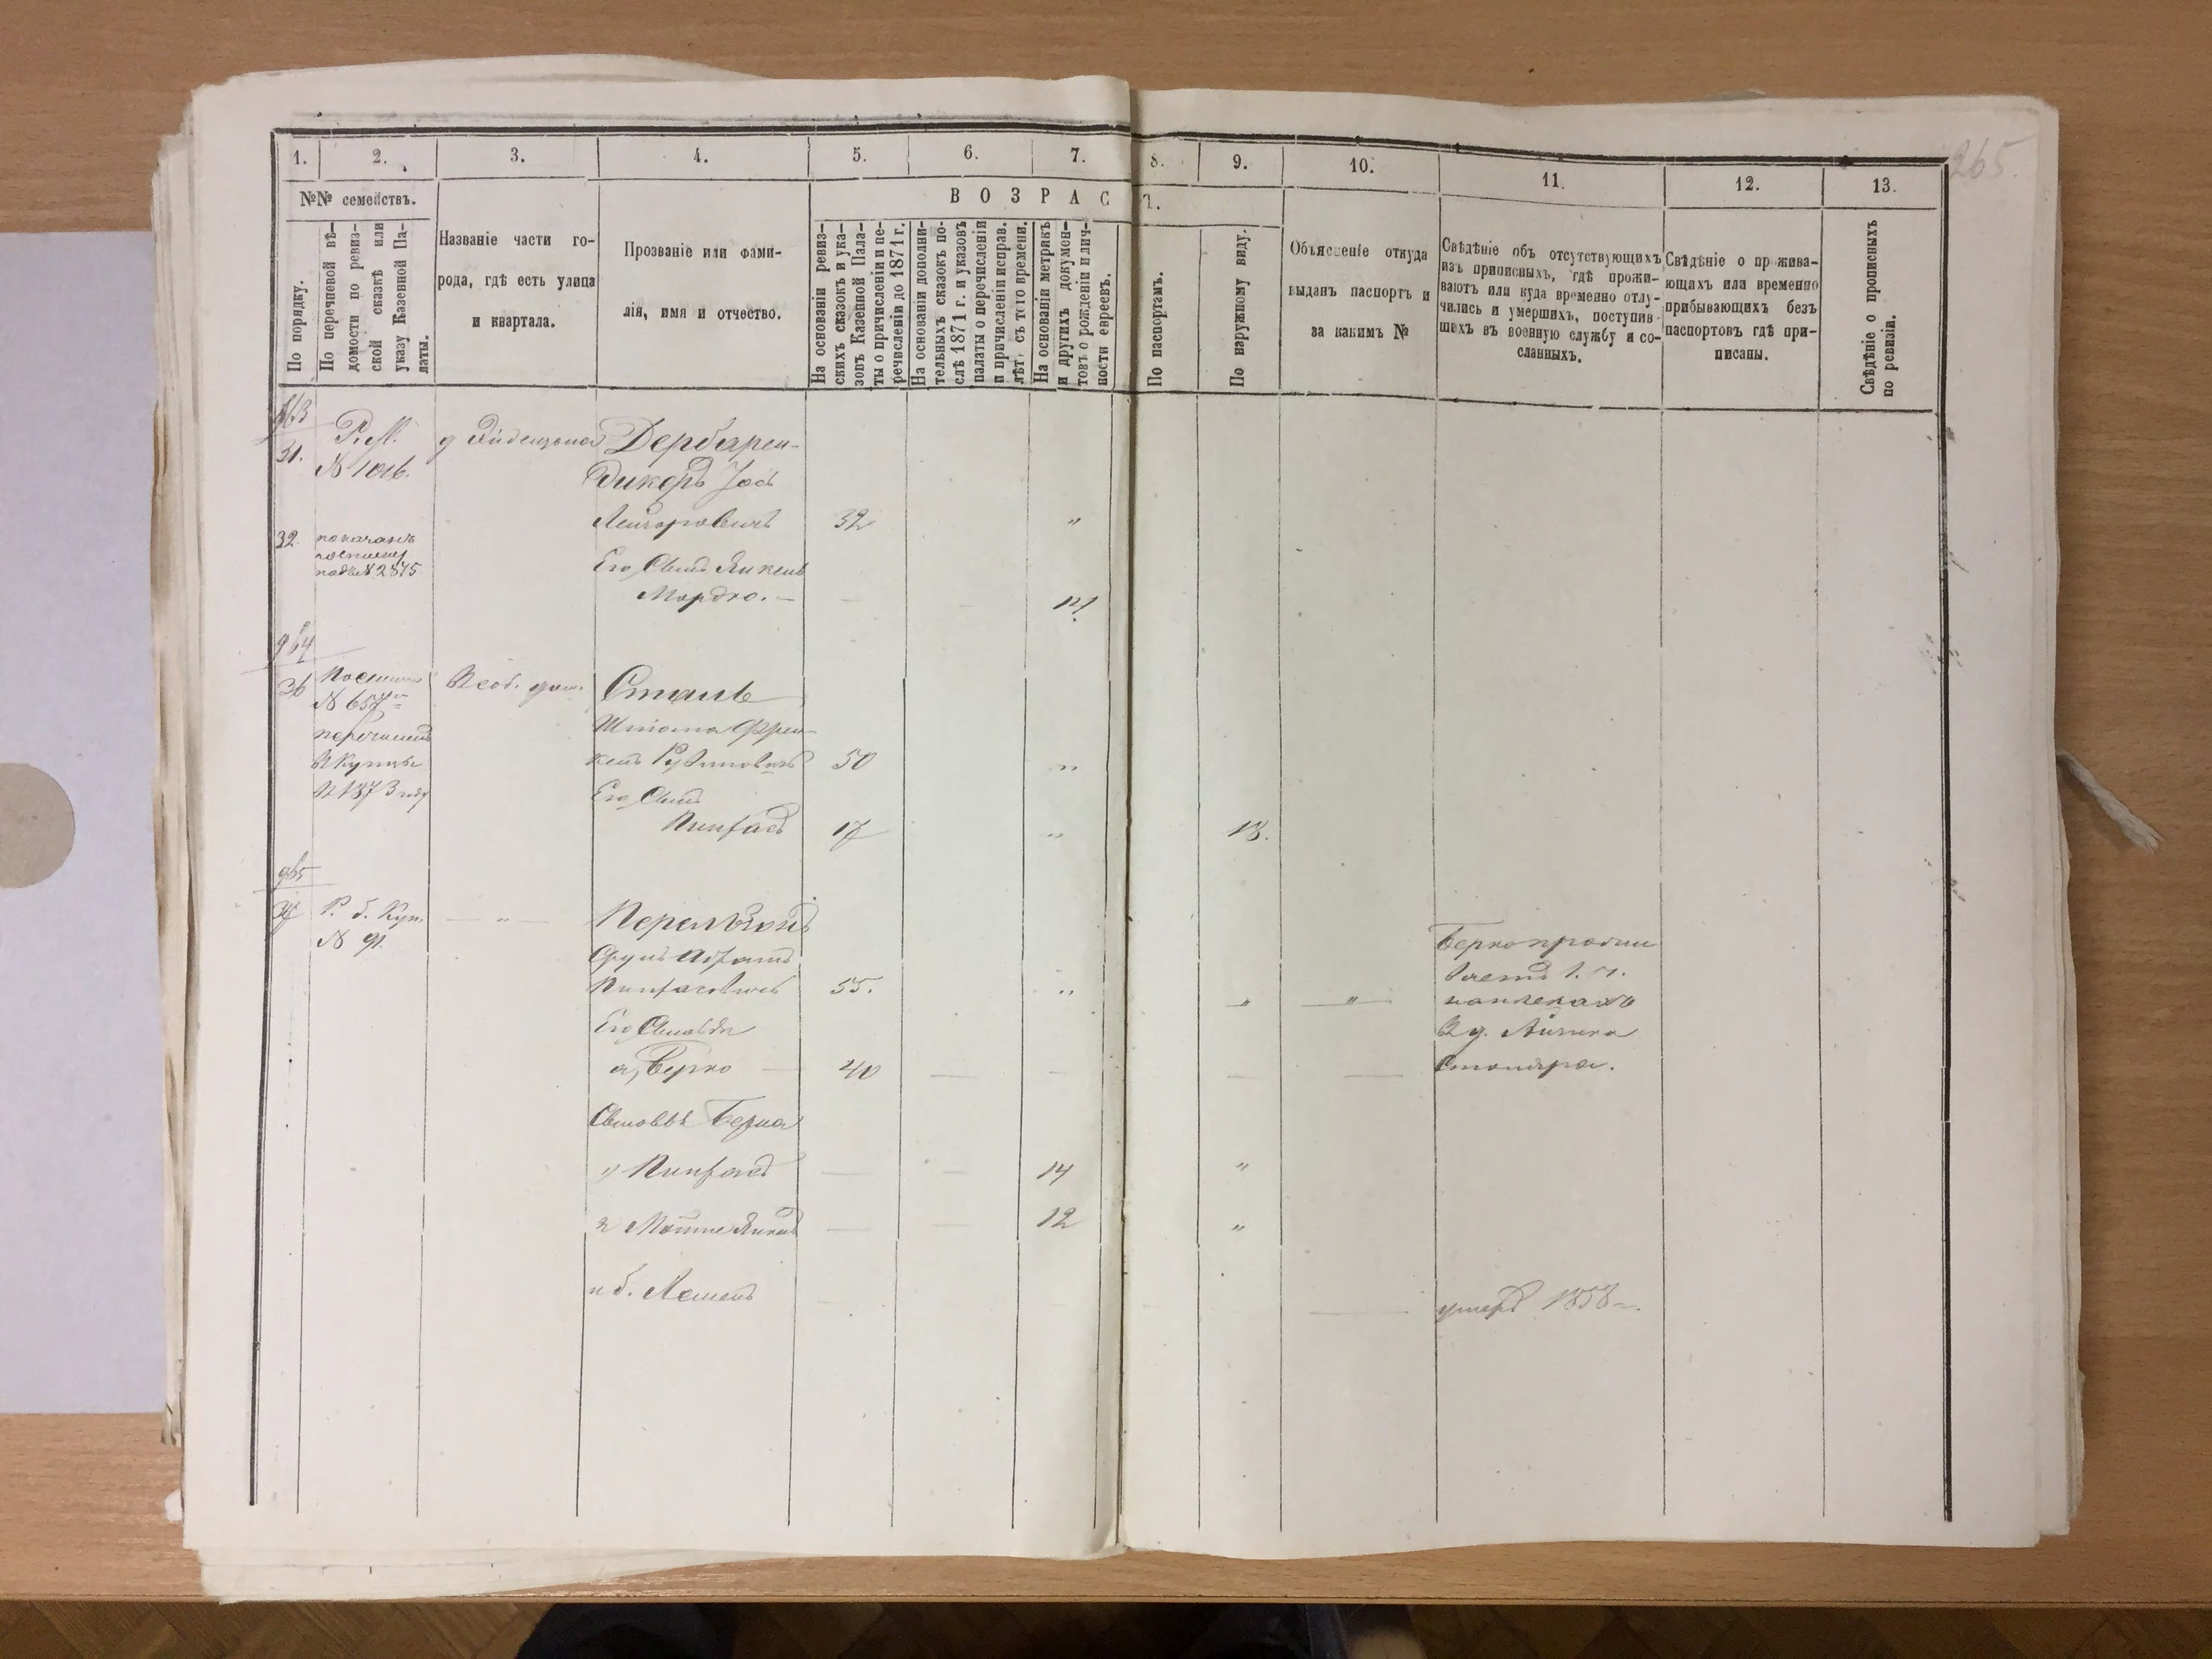 265.
1.
2.
3.
4.
5.
6.
7.
8.
9.
10.
11.
12.
13.
№№ семействъ.
По порядку.
По перечневой вѣ-
домости по ревиз-
ской сказкѣ или
указу Казенной Па-
латы.
Названіе части го-
рода, гдѣ есть улица
и квартала.
Прозваніе или фами-
лія, имя и отчество.
ВОЗРАС
Т.
На основаніи ревиз-
скихъ сказокъ и ука-
зовъ Казенной Пала-
ты о причисленіи и пе-
речисленіи до 1871 г.
На основаніи дополни-
тельныхъ сказокъ по-
слѣ 1871 г. и указовъ
палаты о перечисленіи
и причисленіи исправ.
лѣт. съ того времени.
На основаніи метрикъ
и другихъ докумен-
товъ о рожденіи и лич-
ности евреевъ.
По паспортамъ.
По наружному виду.
Объясненіе откуда
выданъ паспортъ и
за какимъ №
Свѣдѣніе объ отсутствующихъ
изъ приписныхъ, гдѣ прожи-
ваютъ или куда временно отлу-
чились и умершихъ, поступив-
шихъ въ военную службу и со-
сланныхъ.
Свѣдѣніе о прожива-
ющихъ или временно
прибывающихъ безъ
паспортовъ гдѣ при-
писаны.
Свѣдѣніе о прописныхъ
по ревизіи.
963
31. Р. М. Дербарен-
№ 1016. дикеръ Іось
Лейзоровичъ 32 "
32 показанъ
подъ № 2875 Его Сынъ Янкель
Мордко. — — — 12
964
36 Въ соб. дом. Сталь
№ 657
Шліома Френ-
кель Рувиновичъ 50 "
перечисленъ
въ Купцы
въ 1873 году
Его Сынъ
Пинхасъ 17 " 18.
965
37 Р. б. Куп. — " — Перельцонъ
№ 91.
Срулъ Абрамъ
Пинхасовичъ 55. " " — " —
Его Сыновья
а, Берко — 40 — — — —
Берко прожи
ваетъ
Въ д.
Столяра.
Сыновья Берка
1) Пинхасъ — — 14 "
2 Мошко Янкель — — 12 "
б. Лейзеръ — умеръ 1858 г.